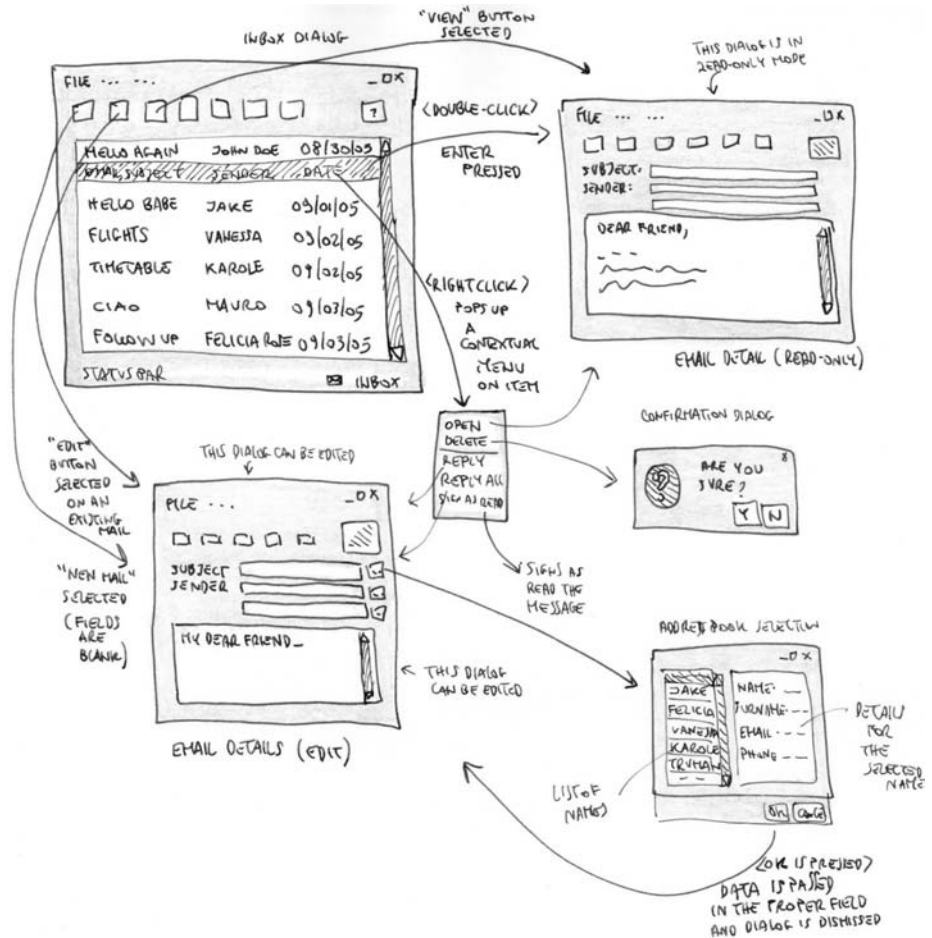 INBOX DIALOG
"VIEW" BUTTON
SELECTED
THIS DIALOG IS IN
READ-ONLY MODE
FILE ... ...
_ □ X
?
HELLO AGAIN JOHN DOE 08/30/05
EMAIL SUBJECT SENDER DATE
HELLO BABE JAKE 09/01/05
FLIGHTS VANESSA 09/02/05
TIMETABLE KAROLE 09/02/05
CIAO MAURO 09/03/05
FOLLOW UP FELICIA ROSE 09/03/05
STATUS BAR
INBOX
<DOUBLE-CLICK>
ENTER
PRESSED
FILE ... ...
_ □ X
SUBJECT:
SENDER:
DEAR FRIEND,
EMAIL DETAIL (READ-ONLY)
<RIGHT CLICK>
POPS UP
A
CONTEXTUAL
MENU
ON ITEM
OPEN
DELETE
REPLY
REPLY ALL
SIGN AS READ
SIGNS AS
READ THE
MESSAGE
CONFIRMATION DIALOG
X
?
ARE YOU
SURE?
Y N
"EDIT"
BUTTON
SELECTED
ON AN
EXISTING
MAIL
"NEW MAIL"
SELECTED
(FIELDS
ARE
BLANK)
THIS DIALOG CAN BE EDITED
FILE ...
_ □ X
SUBJECT
SENDER
MY DEAR FRIEND_
THIS DIALOG
CAN BE EDITED
EMAIL DETAILS (EDIT)
ADDRESS BOOK SELECTION
_ □ X
JAKE
FELICIA
VANESSA
KAROLE
TRUMAN
NAME: --
SURNAME: --
EMAIL: --
PHONE: --
OK CANCEL
LIST OF
NAMES
DETAILS
FOR
THE
SELECTED
NAME
<OK IS PRESSED>
DATA IS PASSED
IN THE PROPER FIELD
AND DIALOG IS DISMISSED